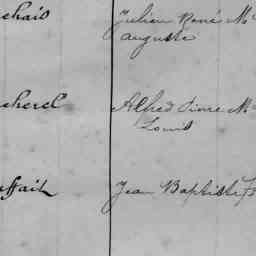 ehais Julien René M
Auguste
cherel Alfred Pierre M
Louis
uffait Jean Baptiste F